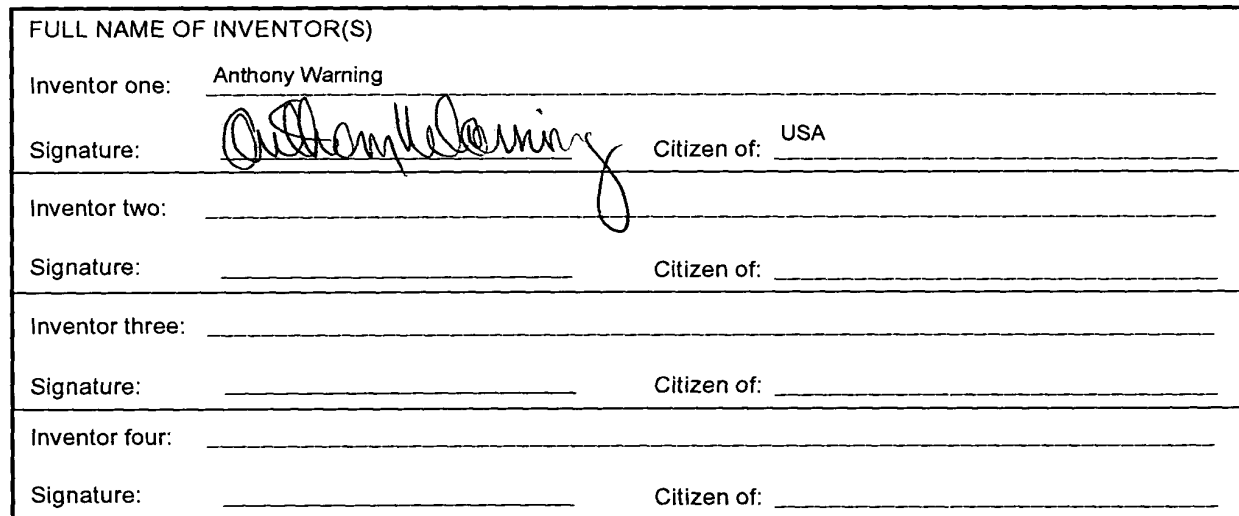 FULL NAME OF INVENTOR(S)
Inventor one: Anthony Warning
Signature: Anthony Warning Citizen of: USA
Inventor two:
Signature: Citizen of:
Inventor three:
Signature: Citizen of:
Inventor four:
Signature: Citizen of: